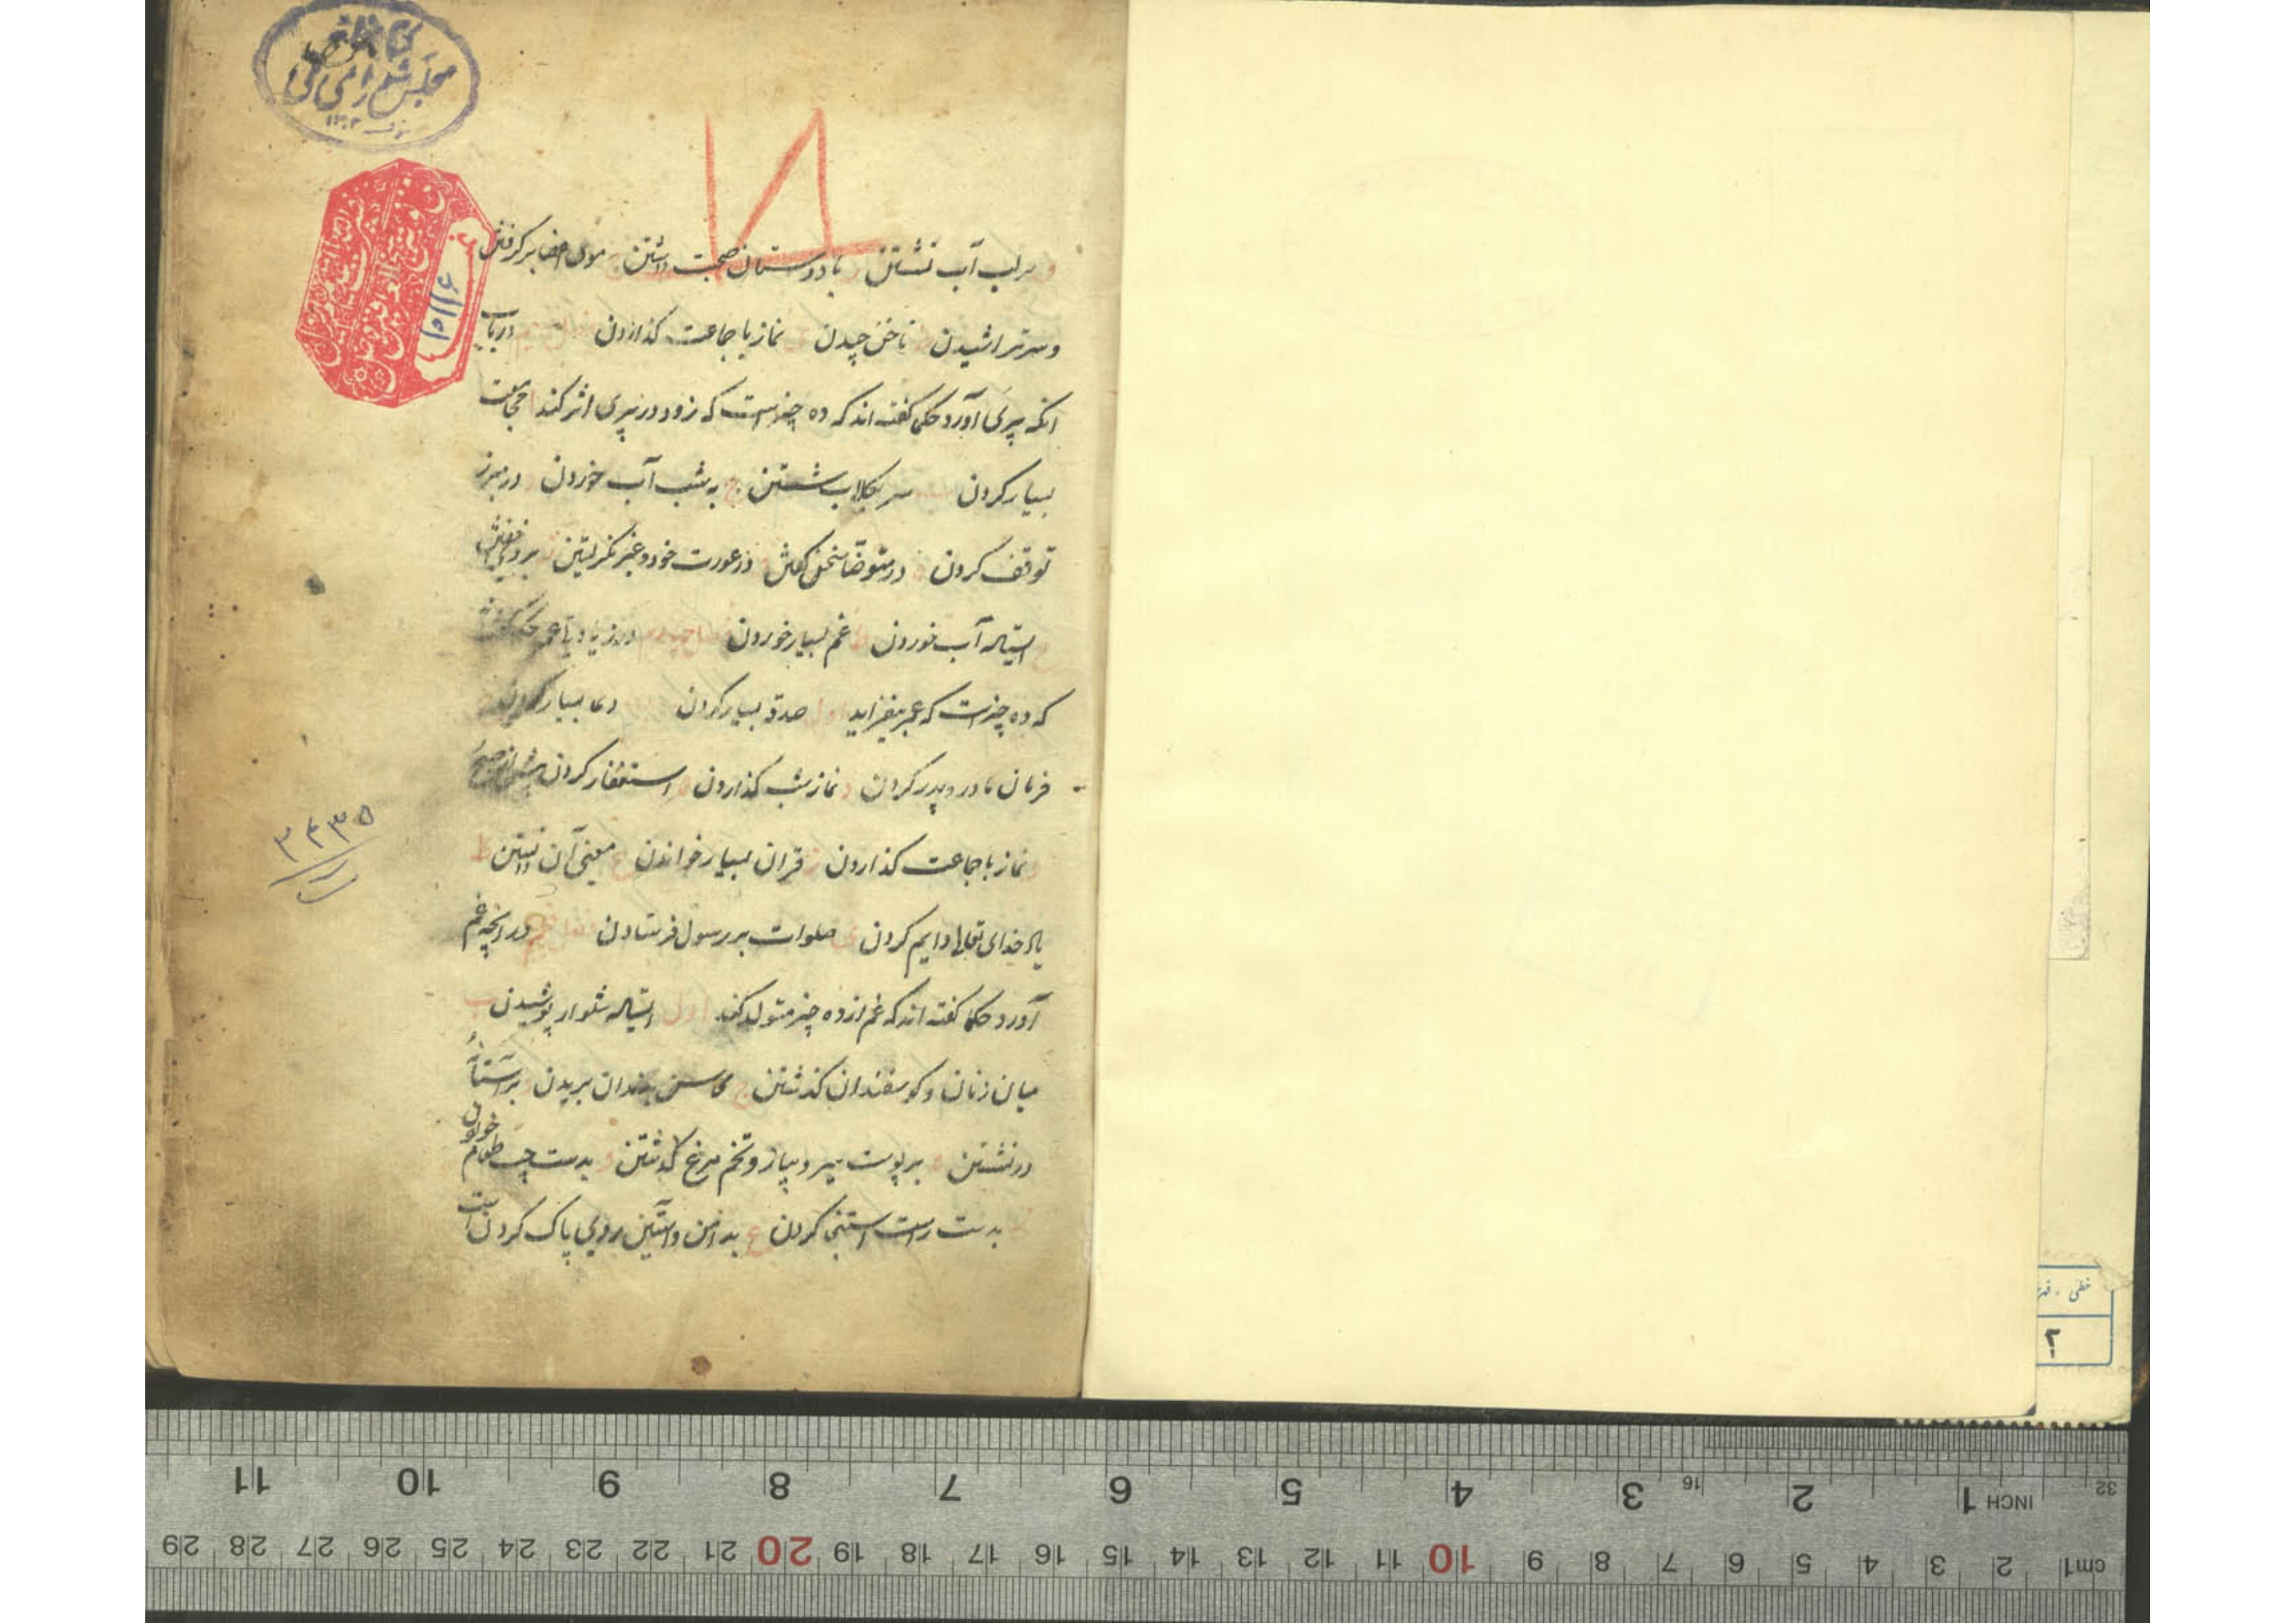 مجلس شورای ملی
۱۳۰۲
۱۵۱۱۶
بر لب آب نشستن با دوستان صحبت داشتن موی اعضا برگرفتن
و سر تراشیدن ناخن چیدن نماز با جماعت گذاردن در باب
انکه پیری آورد حکما گفته اند که ده چیز است که زود در پیری اثر کند ا حجامت
بسیار کردن سر بگلاب شستن ج به شب آب خوردن در مبرز
توقف کردن در متوضا سخن گفتن در عورت خود و غیر نگریستن بر روی
استاده آب خوردن غم بسیار خوردن در زیادتی عمر
که ده چیز است که عمر بیفزاید اول صدقه بسیار کردن دعا بسیار کردن
فرمان مادر و پدر کردن د نماز شب گذاردن ه استغفار کردن پیش از صبح
نماز با جماعت گذاردن ز قران بسیار خواندن معنی آن دانستن ط
یاد خدای تعالی دایم کردن ی صلوات بر رسول فرستادن در انچه غم
آورد حکما گفته اند که غم از ده چیز متولد کند اول استاده شلوار پوشیدن ب
میان زنان و کوسفندان گذشتن ج محاسن بدندان بریدن بر آستانه
در نشستن ه بر پوست سیر و پیاز و تخم مرغ گذشتن و بدست چپ طعام خوردن
بدست راست استنجی کردن ع بدامن و آستین روی پاک کردن
۳۴۳۵
خطی